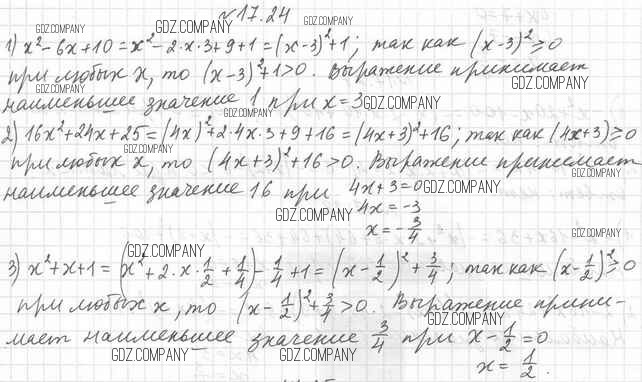 №17.24
GDZ.COMPANY GDZ.COMPANY GDZ.COMPANY
1) x²-6x+10=x²-2·x·3+9+1=(x-3)²+1; так как (x-3)²≥0
при любых x, то (x-3)²+1>0. Выражение принимает
GDZ.COMPANY GDZ.COMPANY
наименьшее значение 1 при x=3 GDZ.COMPANY
GDZ.COMPANY
2) 16x²+24x+25=(4x)²+2·4x·3+9+16=(4x+3)²+16; так как (4x+3)≥0
GDZ.COMPANY
при любых x, то (4x+3)²+16>0. Выражение принимает
GDZ.COMPANY
наименьшее значение 16 при 4x+3=0 GDZ.COMPANY
GDZ.COMPANY 4x=-3
x=-3/4 GDZ.COMPANY
GDZ.COMPANY
3) x²+x+1=(x²+2·x·1/2+1/4)-1/4+1=(x-1/2)²+3/4; так как (x-1/2)²≥0
при любых x, то (x-1/2)²+3/4>0. Выражение прини-
GDZ.COMPANY
мает наименьшее значение 3/4 при x-1/2=0
GDZ.COMPANY GDZ.COMPANY GDZ.COMPANY x=1/2.